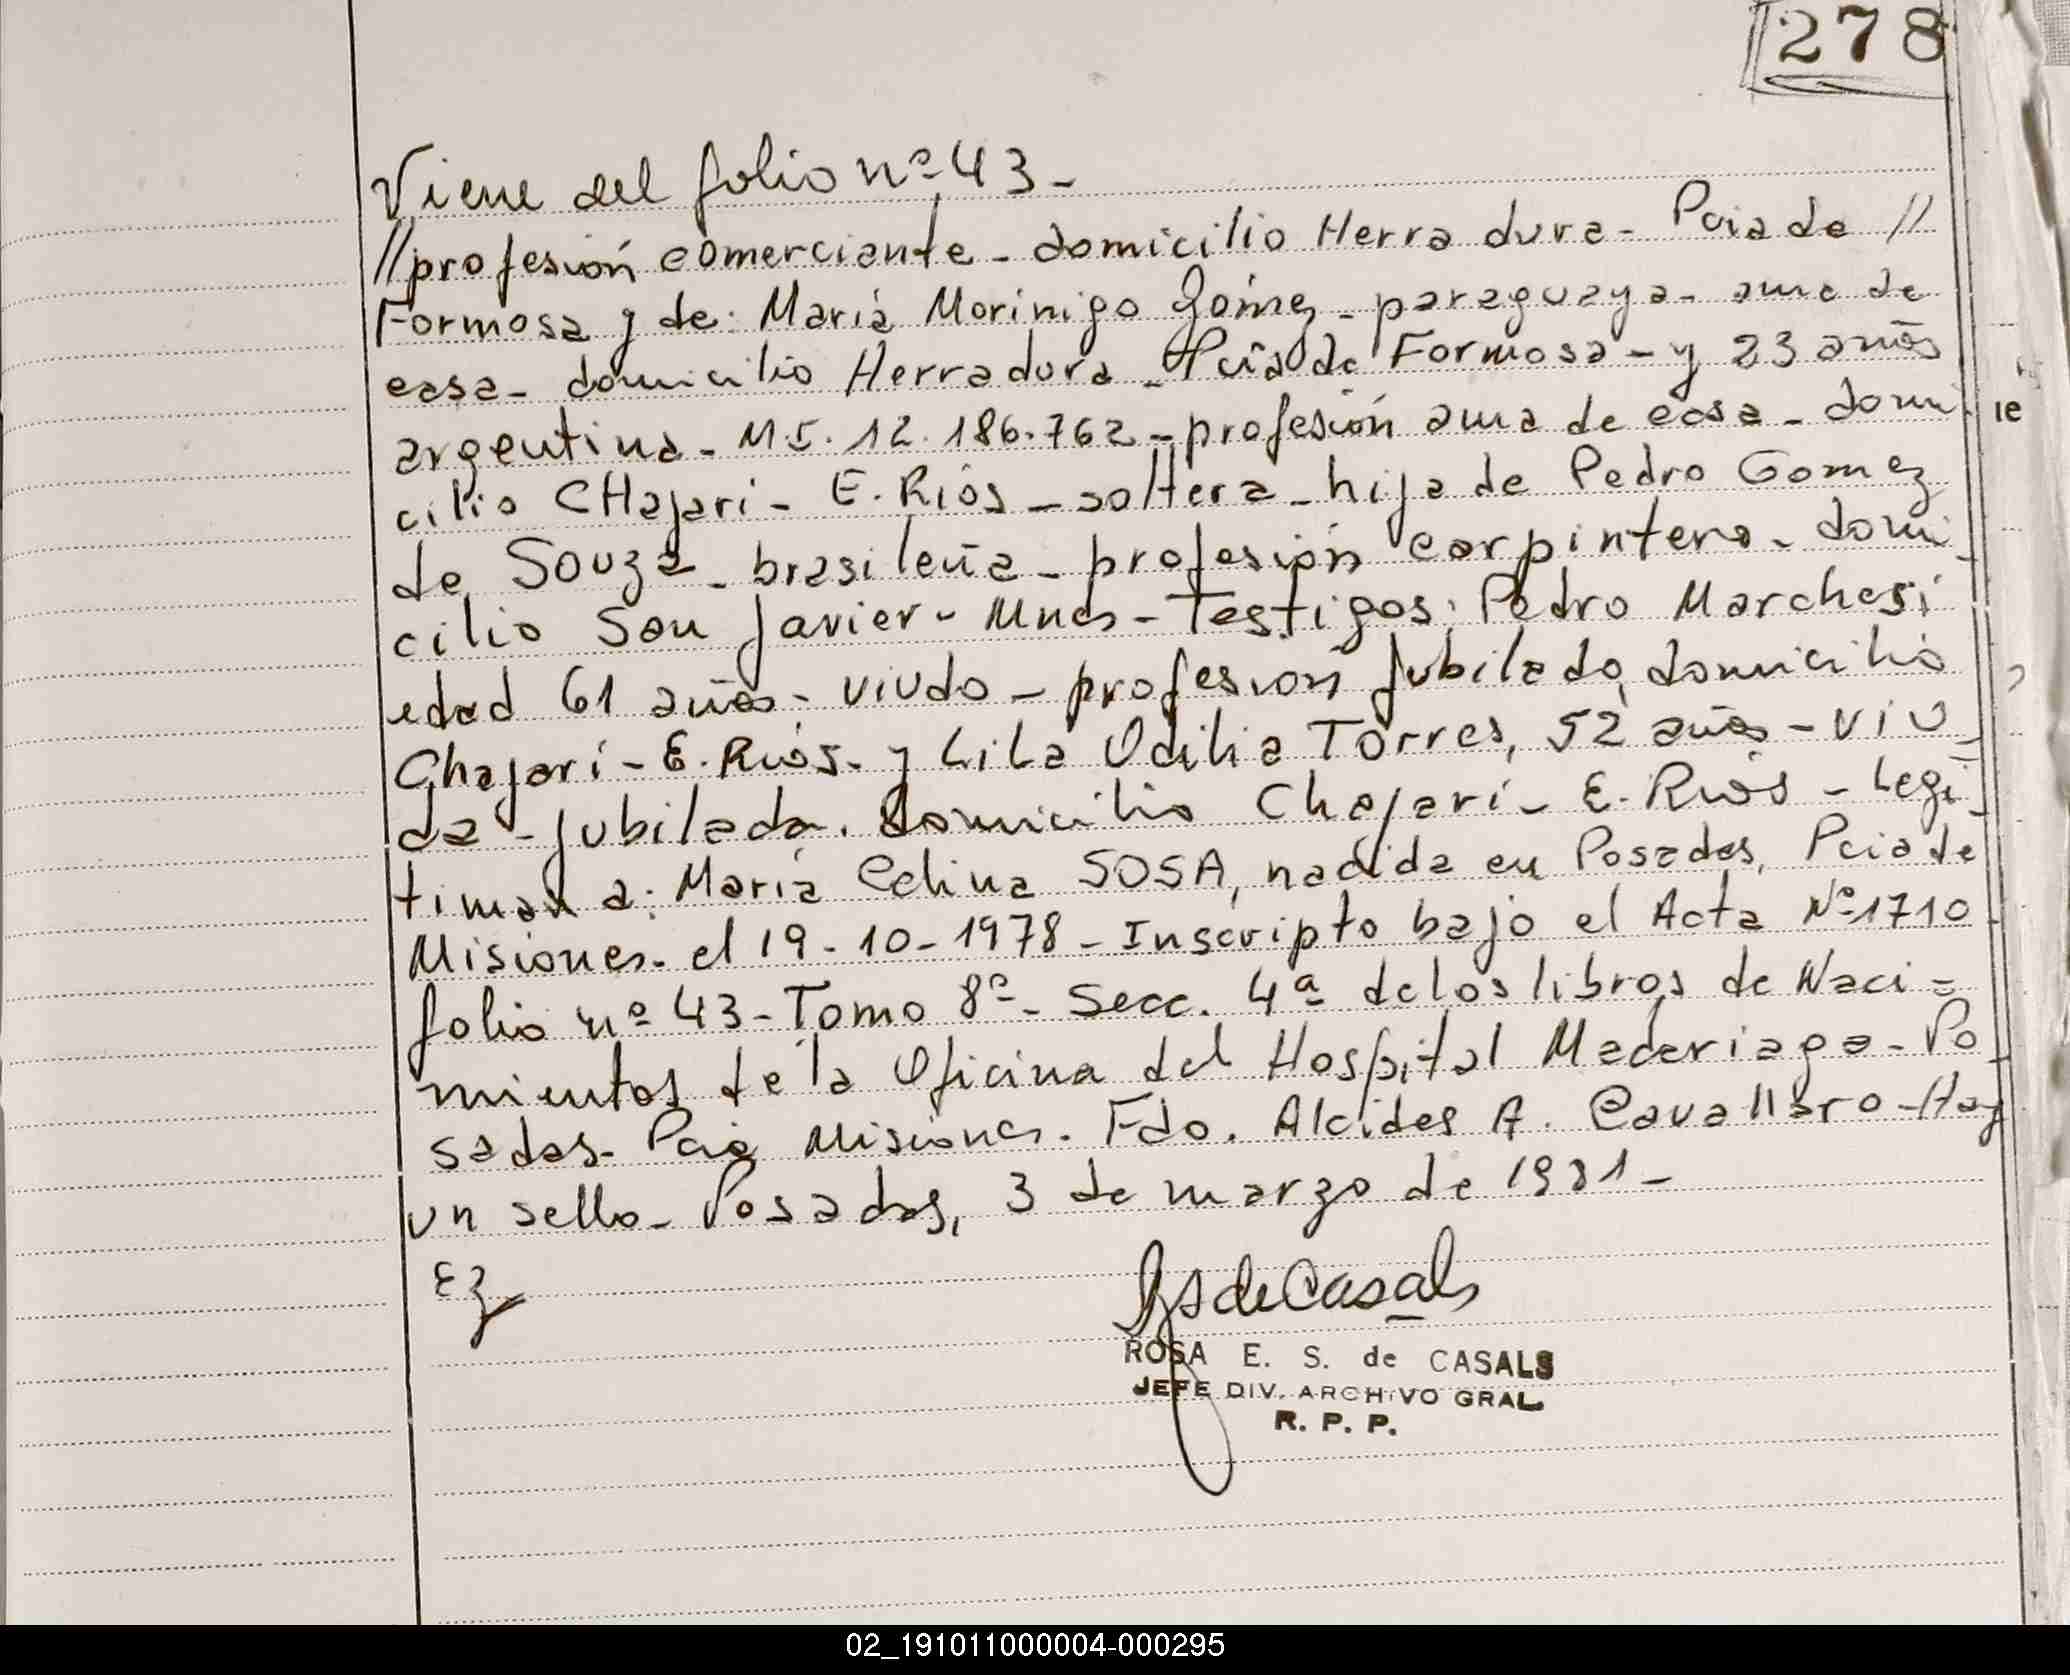 278
Viene del folio nº 43-
//profesión comerciante - domicilio Herradura - Pcia de //
Formosa y de: María Morinigo Gómez - paraguaya - ama de
casa - domicilio Herradura - Pcia de Formosa - y 23 años
argentina - M I. 12.186.762 - profesión ama de casa - domi
cilio CHajarí - E. Ríos - soltera - hija de Pedro Gomez
de Souza - brasileña - profesión carpintero - domi-
cilio San Javier - Mnes - Testigos: Pedro Marchesi
edad 61 años - viudo - profesión jubilado, domicilio
Chajarí - E. Ríos - y Lila Odilia Torres, 52 años - viu-
da - jubilada. domicilio Chajarí - E. Ríos - Legi-
timan a: María Celina SOSA, nacida en Posadas, Pcia de
Misiones - el 19-10-1978 - Inscripto bajo el Acta Nº 1710
folio nº 43 - Tomo 8º - Secc. 4ª de los libros de Naci-
mientos de la Oficina del Hospital Madariaga - Po-
sadas - Pcia Misiones. Fdo. Alcides A. Cavallaro - Hay
un sello - Posadas, 3 de marzo de 1981 -
Ez
RSdeCasals
ROSA E. S. de CASALS
JEFE DIV. ARCHIVO GRAL.
R. P. P.
ie
02_191011000004-000295